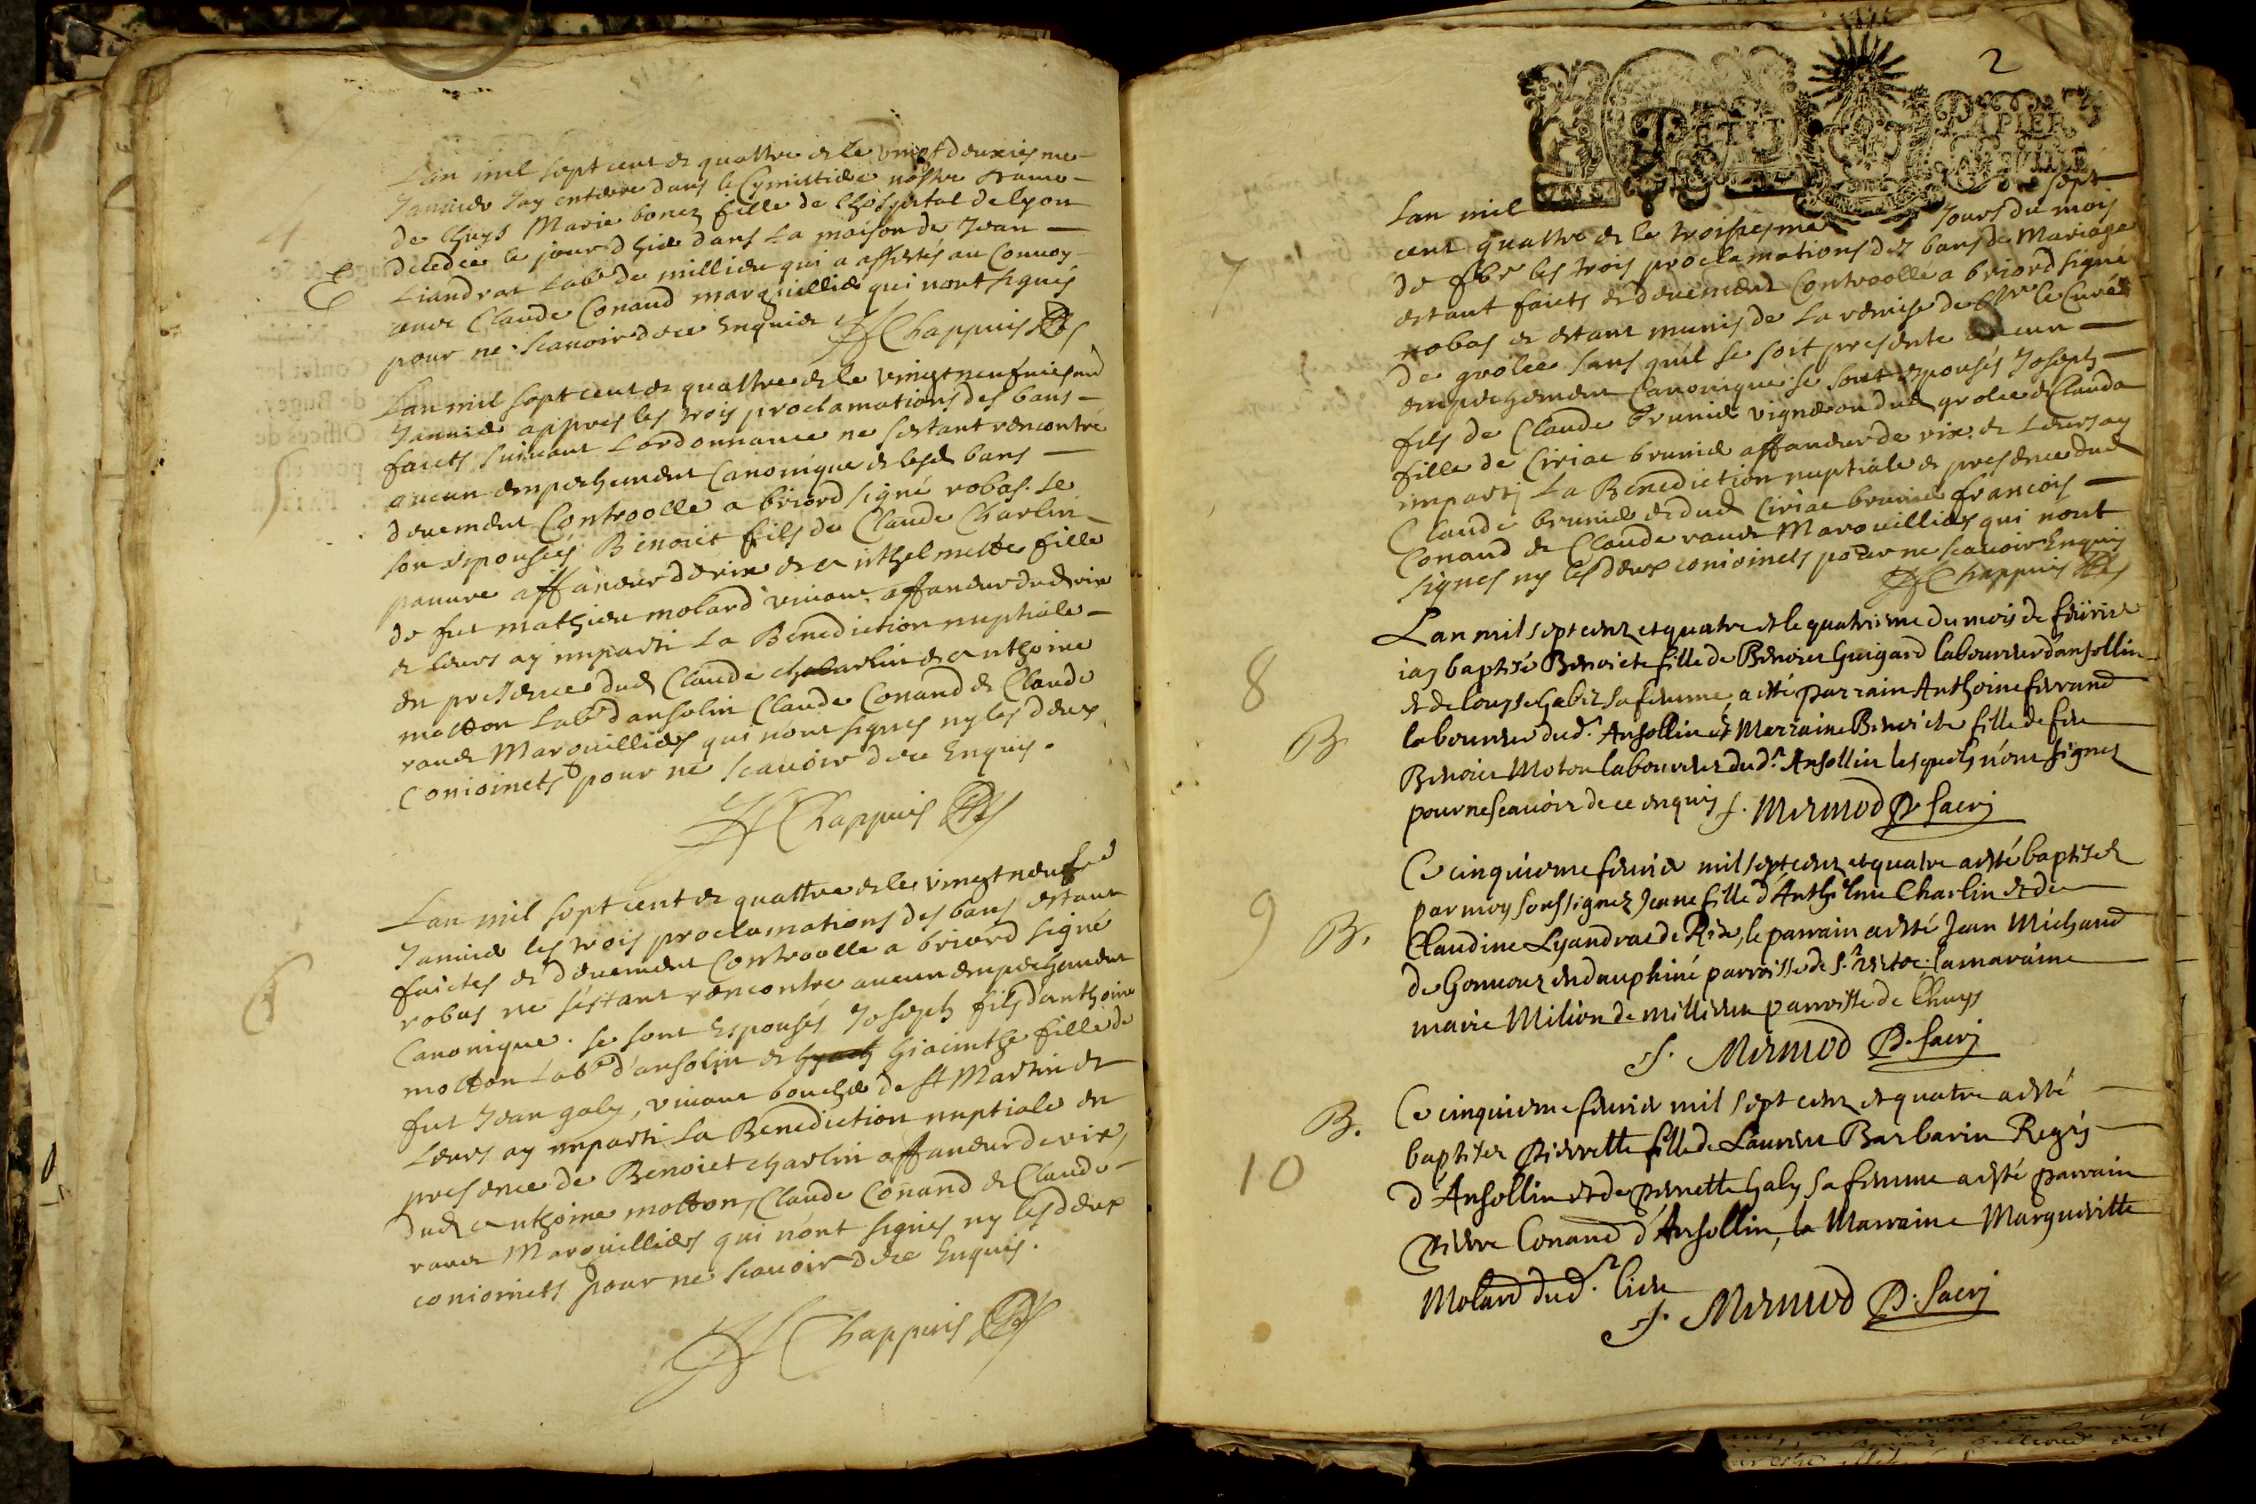 4
E
Lan mil sept cent et quattre et le vingt deuxiesme
Janvier Jay enterre dans le Cymittiere nostre Dame
de Chuys Marie bonez fille de lhospital de lyon
decedee le jour dhier dans La maison de Jean
Liandrat Lab.r de millieu qui a assistés au Convoy
avec Claude Conand marquillier qui nont signés
pour ne scavoir de ce Enquier Chappuis
5
Lan mil sept cent et quattre et le vingt neufviesme
Janvier appres les trois proclamations des bans
faicts suivant Lordonnance ne sestant rencontré
aucun empeschement Canonique et lesd bans
devement Controolle a briord signé robas. se
son espousés Benoict fils de Claude Charlin
pauvre affaneur de rix et anthelmette fille
de fut mathieu molard vivant affaneur dud rix
et leurs ay imparti La Benediction nuptiale
en presence dud Claude charlin et anthoine
molton Lab.r dansolin Claude Conand et Claude
ravet Marquilliers qui nont signes ny les deux
conioincts pour ne scavoir de ce Enquis.
Chappuis
6
Lan mil sept cent et quattre et le vingt neuf
Janvier les trois proclamations des bans estant
faictes et devement Controolle a briord signé
robas ne sestant rencontre aucun empeschement
Canonique. se sont Espousés Joseph fils danthoine
molton Lab.r dansolin et Giacinthe fille de
fut Jean galy, vivant boucher de st Martin et
Leurs ay imparti La Benediction nuptiale en
presence de Benoict charlin affaneur de rix,
dud anthoine molton, Claude Conand et Claude
ravet Marquilliers qui nont signés ny les deux
conioincts pour ne scavoir de ce Enquis.
Chappuis
2
PETIT PAPIER
7
Lan mil sept
cent quattre et le troisiesme Jours du mois
de fbr les trois proclamations des bans de Mariage
estant faicts et devement Controolle a briord signe
robas et estant munis de La remise de Mr le Curé
de grolee sans quil se soit presente aucun
empeschement Canonique se sont espousés Joseph
fils de Claude brunier vigneron dud grolee et Clauda
fille de Ciriac brunier affaneur de rix. et Leurs ay
imparti La Benediction nuptiale et presence dud
Claude brunier et dud Ciriac brunier francois
Conand et Claude ravet Marquilliers qui nont
signes ny les deux conioincts pour ne scavoir Enquis
Chappuis
8
B
Lan mil sept cent et quatre et le quatrieme du mois de fevrier
iay baptisé Benoicte fille de Benoict Guigard laboureur dansollin
et de louyse Gabet sa femme, a esté parrain Anthoine ferrand
laboureur dud.t Ansollin et Marraine Benoicte fille de feu
Benoict Moton laboureur dud.t Ansollin lesquels nont signez
pour ne scavoir de ce enquis f. Mermod
9
B.
Ce cinquieme fevrier mil sept cent et quatre a esté baptisee
par moy soussignez Jeane fille d'Anthelme Charlin et de
Claudine Lyandrat de Rix, le parrain a esté Jean Michaud
de Gouvoux en dauphiné parroisse de S.t Victor. la maraine
marie Milion de millieu parroisse de Chuys
f. Mermod
B.
10
Ce cinquieme fevrier mil sept cent et quatre a esté
baptisee Pierrette fille de Laurent Barbarin
d'Ansollin et de Pernette Galy sa femme a esté parrain
Pierre Conand d'Ansollin, la Marraine Margueritte
Molard dud.t lieu
f. Mermod